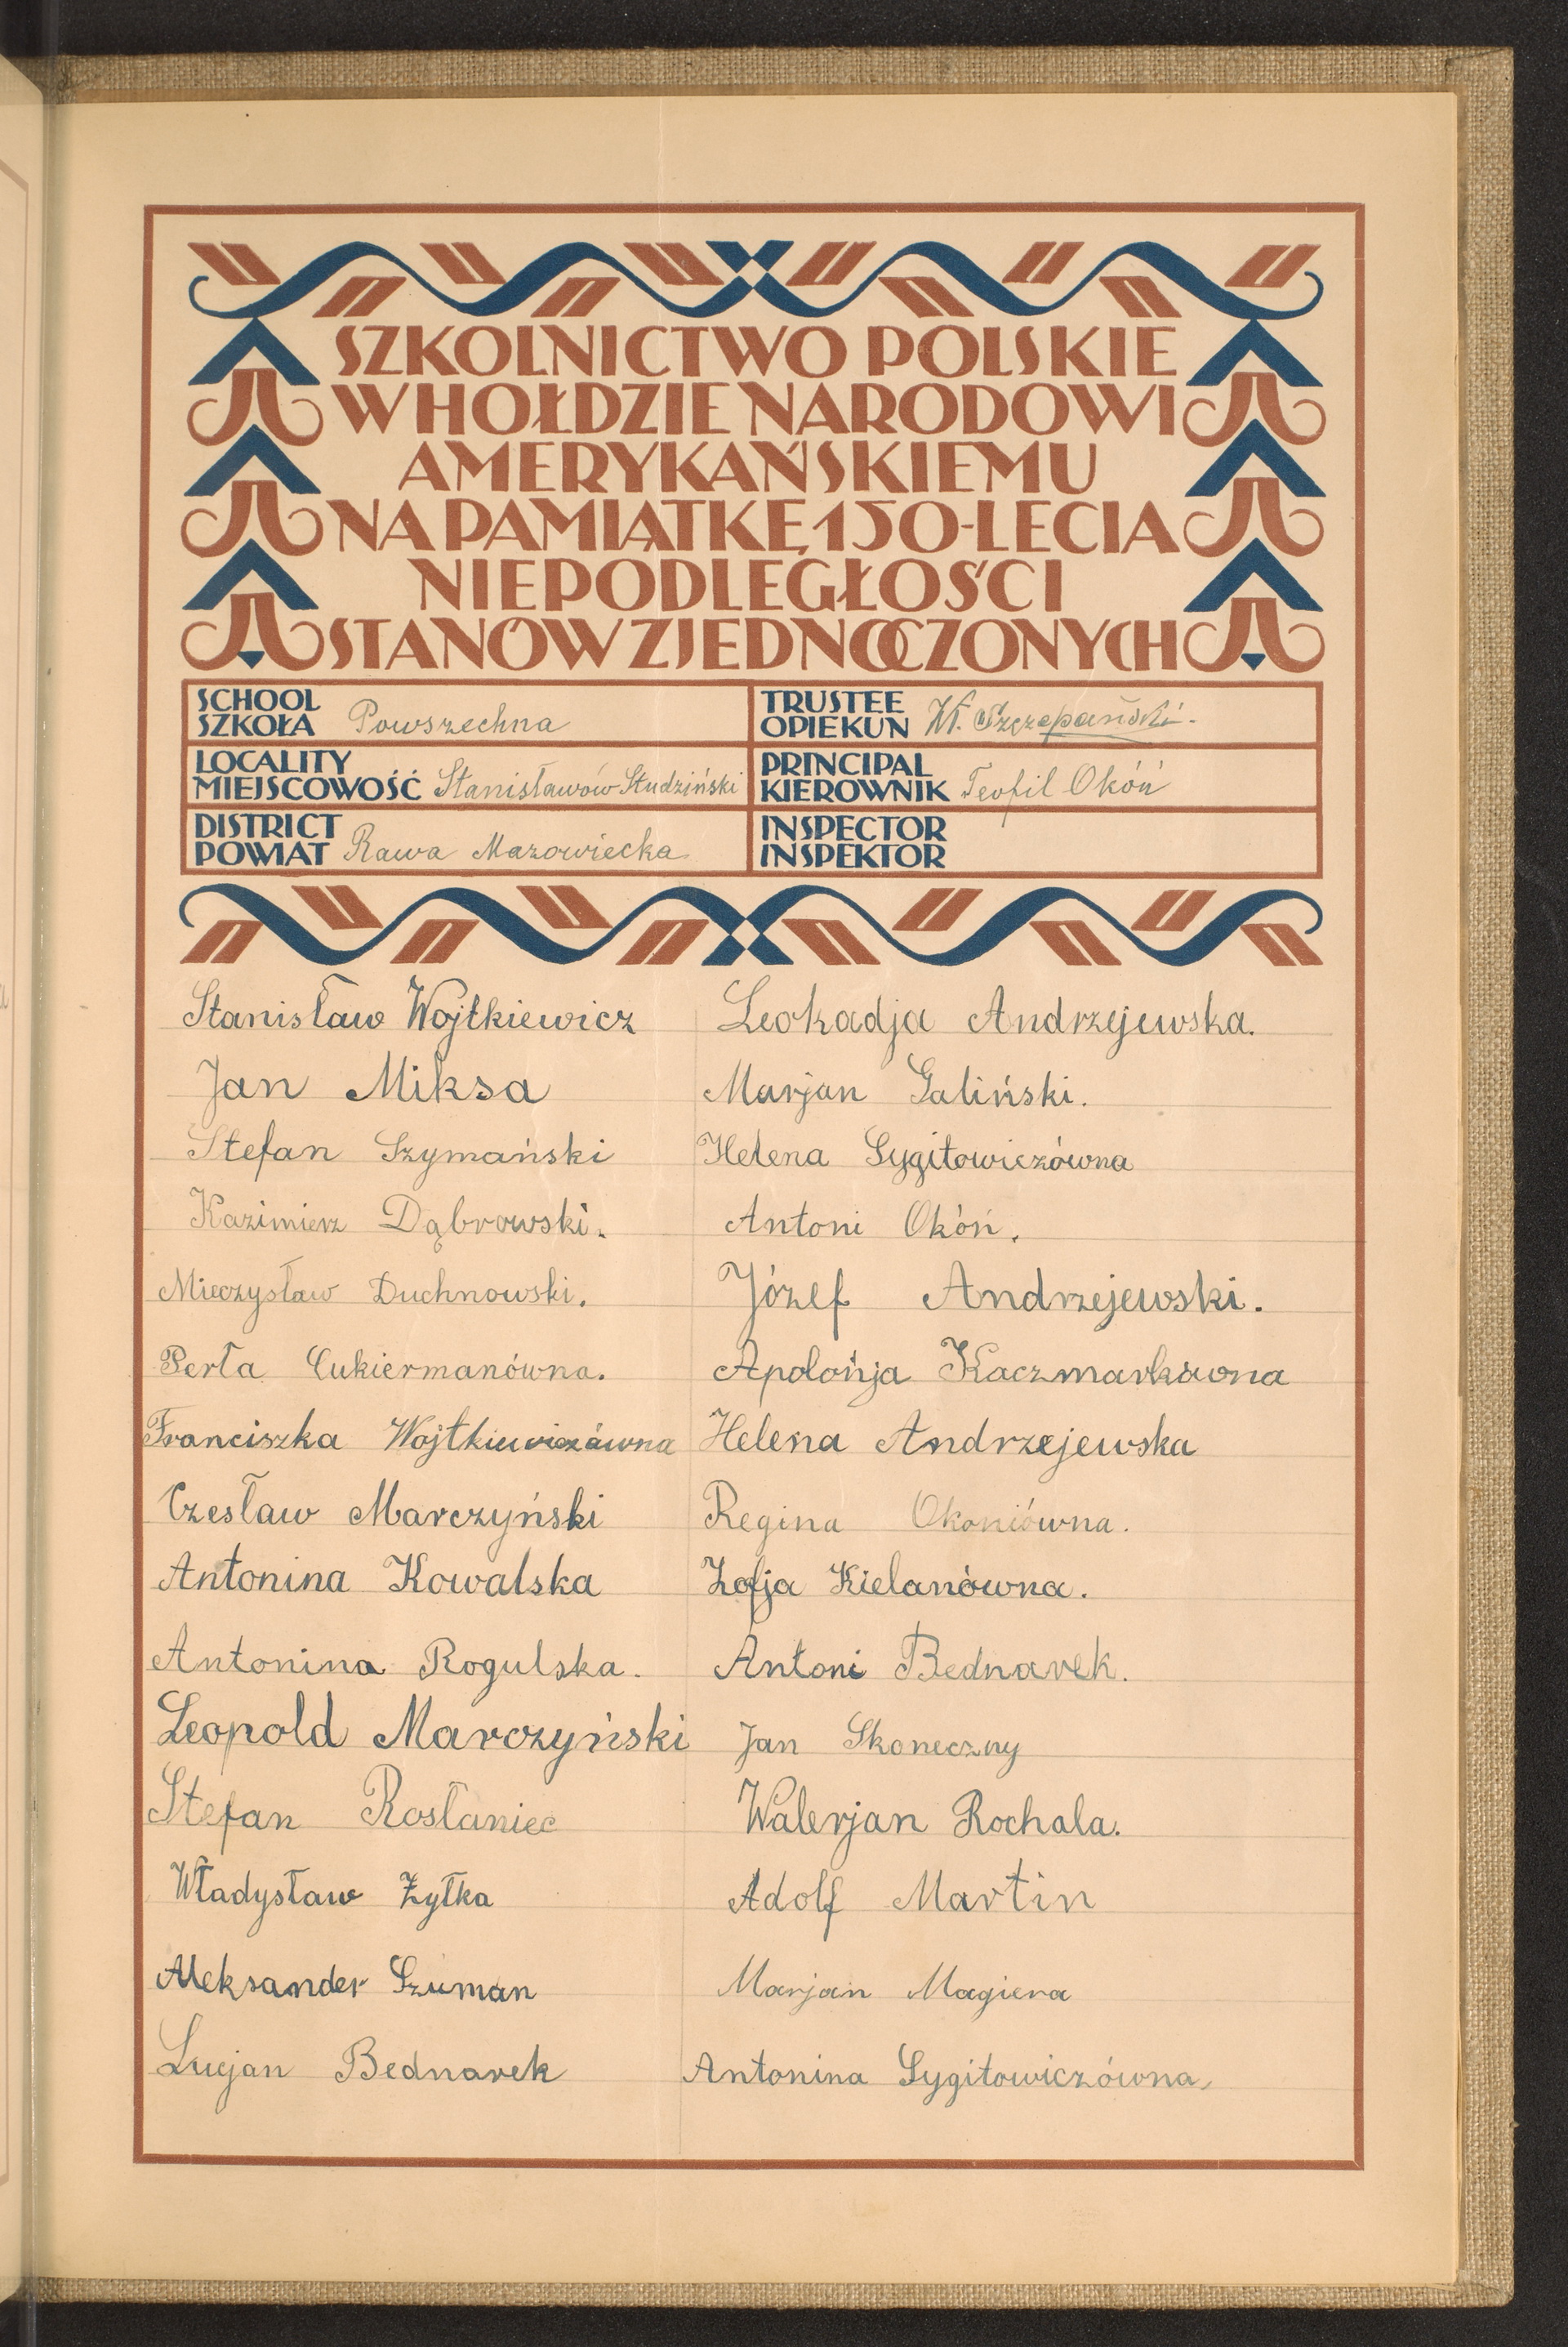 SZKOLNICTWO POLSKIE
W HOŁDZIE NARODOWI
AMERYKAŃSKIEMU
NA PAMIĄTKĘ 150-LECIA
NIEPODLEGŁOŚCI
STANÓW ZJEDNOCZONYCH
SCHOOL
SZKOŁA Powszechna
TRUSTEE
OPIEKUN Wł. Szczepański.
LOCALITY
MIEJSCOWOŚĆ Stanisławów Studziński
PRINCIPAL
KIEROWNIK Teofil Okóń
DISTRICT
POWIAT Rawa Mazowiecka
INSPECTOR
INSPEKTOR
Stanisław Wojtkiewicz
Jan Miksa
Stefan Szymański
Kazimierz Dąbrowski.
Mieczysław Duchnowski.
Perła Cukiermanówna.
Franciszka Wojtkiewiczówna
Czesław Marczyński
Antonina Kowalska
Antonina Rogulska.
Leopold Marczyński
Stefan Rosłaniec
Władysław Żyłka
Aleksander Szuman
Lucjan Bednarek
Leokadja Andrzejewska.
Marjan Galiński.
Helena Sygitowiczówna
Antoni Okóń.
Józef Andrzejewski.
Apolońja Kaczmarkówna
Helena Andrzejewska
Regina Okoniówna.
Zofja Kielanówna.
Antoni Bednarek.
Jan Skoneczny
Walerjan Rochala.
Adolf Martin
Marjan Magiera
Antonina Sygitowiczówna,